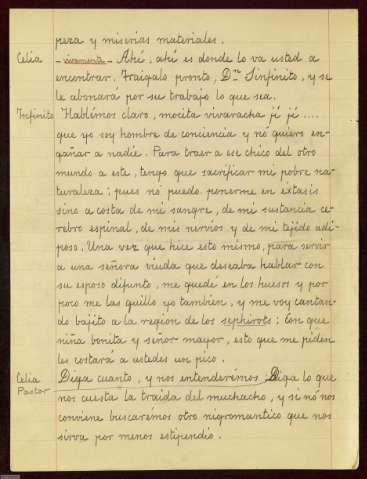 peza y miserias materiales.
Celia - vivamente - Ahí, ahí es donde lo va usted a
encontrar. Traígalo pronto, Dn. Sinfinito, y se
le abonará por su trabajo lo que sea.
Infinito Hablémos claro, mocita vivaracha ji ji ....
que yo soy hombre de conciencia y no quiero en-
gañar a nadie. Para traer a ese chico del otro
mundo a este, tengo que sacrificar mi pobre na-
turaleza; pues no puedo ponerme en éxtasis
sino a costa de mi sangre, de mi sustancia ce-
rebro espinal, de mis nervios y de mi tejido adi-
poso. Una vez que hice esto mismo, para servir
a una señora viuda que deseaba hablar con
su esposo difunto, me quedé en los huesos y por
poco me las guillo yo tambien, y me voy cantan-
do bajito a la region de los sephirots: Con que
niña bonita y señor mayor, esto que me piden
les costará a ustedes un pico.
Celia Diga cuanto, y nos entenderémos. Diga lo que
Pastor nos cuesta la traida del muchacho, y si nó nos
conviene buscarémos otro nigromantico que nos
sirva por menos estipendio.